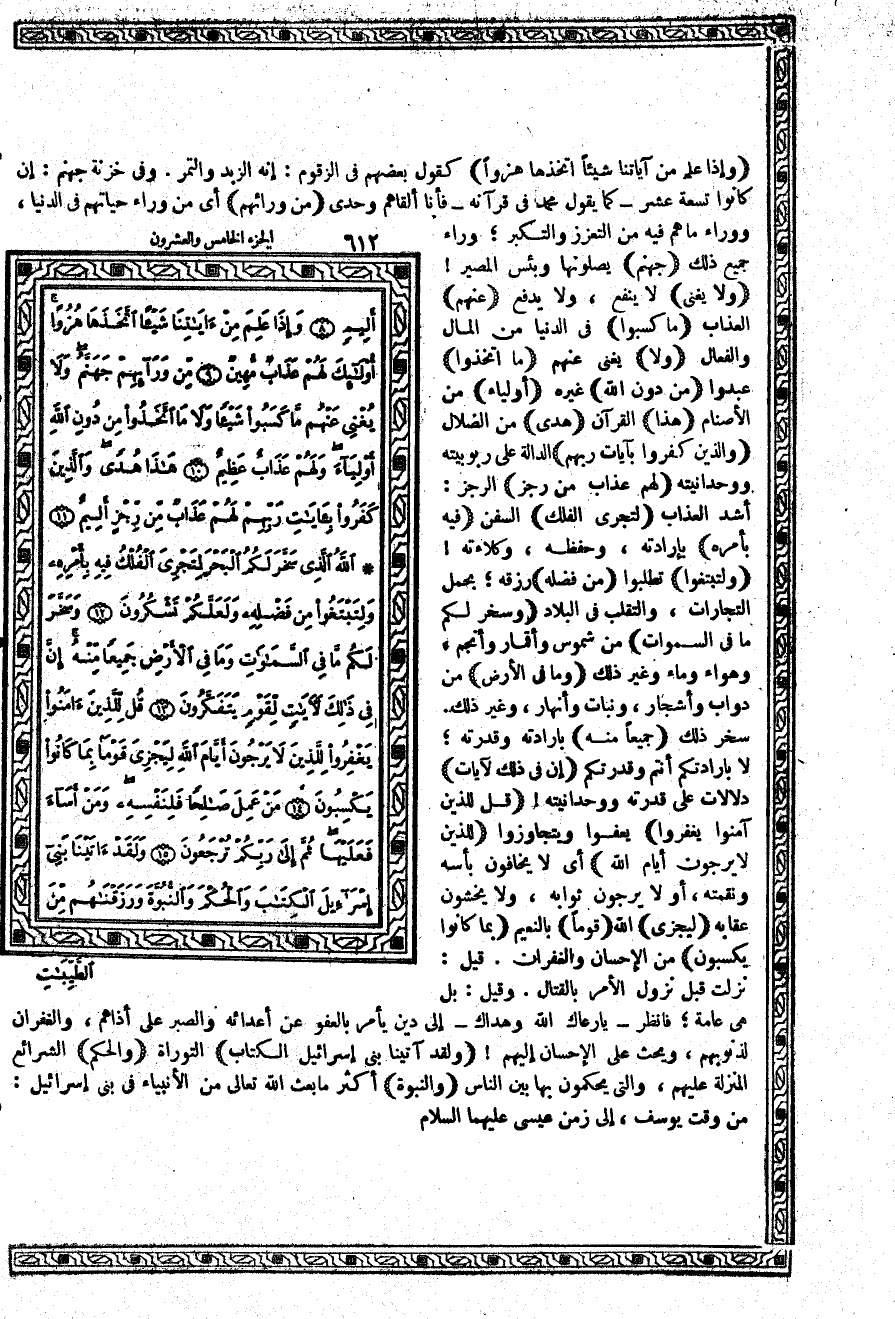 (وإذا علم من آياتنا شيئاً اتخذها هزواً) كقول بعضهم فى الزقوم : إنه الزبد والتمر . وفى خزنة جهنم : إن
كانوا تسعة عشر ــ كما يقول محمد فى قرآنه ــ فأنا ألقاهم وحدى (من ورائهم) أى من وراء حياتهم فى الدنيا ،
ووراء ماهم فيه من التعزز والتكبر ؛ وراء
جميع ذلك (جهنم) يصلونها وبئس المصير !
(ولا يغنى) لا ينفع ، ولا يدفع (عنهم)
العذاب (ما كسبوا) فى الدنيا من المال
والفعال (ولا) يغنى عنهم (ما اتخذوا)
عبدوا (من دون الله) غيره (أولياء) من
الأصنام (هذا) القرآن (هدى) من الضلال
(والذين كفروا بآيات ربهم) الدالة على ربوبيته
ووحدانيته (لهم عذاب من رجز) الرجز :
أشد العذاب (لتجرى الفلك) السفن (فيه
بأمره) بإرادته ، وحفظه ، وكلاءته !
(ولتبتغوا) تطلبوا (من فضله) رزقه ؛ بحمل
التجارات ، والتقلب فى البلاد (وسخر لكم
ما فى السموات) من شموس وأقمار وأنجم ،
وهواء وماء وغير ذلك (وما فى الأرض) من
دواب وأشجار ، ونبات وأنهار ، وغير ذلك.
سخر ذلك (جميعاً منه) بارادته وقدرته ؛
لا بارادتكم أنتم وقدرتكم (إن فى ذلك لآيات)
دلالات على قدرته ووحدانيته ! (قل للذين
آمنوا يغفروا) يعفوا ويتجاوزوا (للذين
لا يرجون أيام الله) أى لا يخافون بأسه
ونقمته ، أو لا يرجون ثوابه ، ولا يخشون
عقابه (ليجزى) الله (قوماً) بالنعيم (بما كانوا
يكسبون) من الإحسان والغفرات . قيل :
نزلت قبل نزول الأمر بالقتال . وقيل : بل
هى عامة ؛ فانظر ــ يارعاك الله وهداك ــ إلى دين يأمر بالعفو عن أعدائه والصبر على أذاهم ، والغفران
لذنوبهم ، ويحث على الإحسان إليهم ! (ولقد آتينا بنى إسرائيل الكتاب) التوراة (والحكم) الشرائع
المنزلة عليهم ، والتى يحكمون بها بين الناس (والنبوة) أكثر مابعث الله تعالى من الأنبياء فى بنى إسرائيل :
من وقت يوسف ، إلى زمن عيسى عليهما السلام
٦١٢ الجزء الخامس والعشرون
أَلِيمٍ ٨ وَإِذَا عَلِمَ مِنْ ءَايَٰتِنَا شَيْـًٔا ٱتَّخَذَهَا هُزُوًا ۚ
أُو۟لَٰٓئِكَ لَهُمْ عَذَابٌ مُّهِينٌ ٩ مِّن وَرَآئِهِمْ جَهَنَّمُ ۖ وَلَا
يُغْنِى عَنْهُم مَّا كَسَبُوا۟ شَيْـًٔا وَلَا مَا ٱتَّخَذُوا۟ مِن دُونِ ٱللَّهِ
أَوْلِيَآءَ ۖ وَلَهُمْ عَذَابٌ عَظِيمٌ ١٠ هَٰذَا هُدًى ۖ وَٱلَّذِينَ
كَفَرُوا۟ بِـَٔايَٰتِ رَبِّهِمْ لَهُمْ عَذَابٌ مِّن رِّجْزٍ أَلِيمٌ ١١
* ٱللَّهُ ٱلَّذِى سَخَّرَ لَكُمُ ٱلْبَحْرَ لِتَجْرِىَ ٱلْفُلْكُ فِيهِ بِأَمْرِهِۦ
وَلِتَبْتَغُوا۟ مِن فَضْلِهِۦ وَلَعَلَّكُمْ تَشْكُرُونَ ١٢ وَسَخَّرَ
لَكُم مَّا فِى ٱلسَّمَٰوَٰتِ وَمَا فِى ٱلْأَرْضِ جَمِيعًا مِّنْهُ ۚ إِنَّ
فِى ذَٰلِكَ لَءَايَٰتٍ لِّقَوْمٍ يَتَفَكَّرُونَ ١٣ قُل لِّلَّذِينَ ءَامَنُوا۟
يَغْفِرُوا۟ لِلَّذِينَ لَا يَرْجُونَ أَيَّامَ ٱللَّهِ لِيَجْزِىَ قَوْمًۢا بِمَا كَانُوا۟
يَكْسِبُونَ ١٤ مَنْ عَمِلَ صَٰلِحًا فَلِنَفْسِهِۦ ۖ وَمَنْ أَسَآءَ
فَعَلَيْهَا ۖ ثُمَّ إِلَىٰ رَبِّكُمْ تُرْجَعُونَ ١٥ وَلَقَدْ ءَاتَيْنَا بَنِىٓ
إِسْرَٰٓءِيلَ ٱلْكِتَٰبَ وَٱلْحُكْمَ وَٱلنُّبُوَّةَ وَرَزَقْنَٰهُم مِّنَ
ٱلطَّيِّبَٰتِ